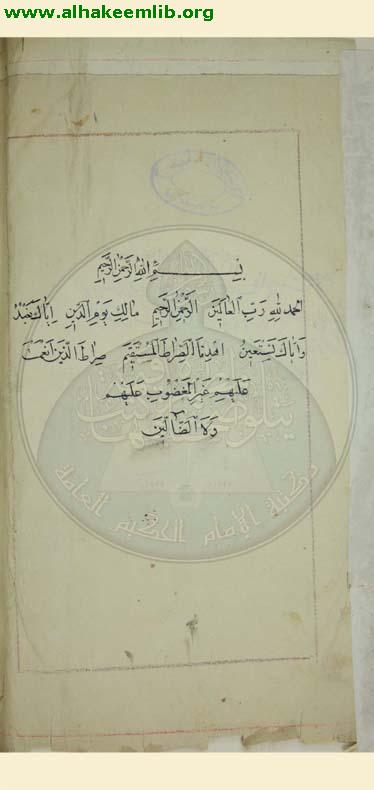 www.alhakeemlib.org
بسم الله الرحمن الرحيم
الحمد لله رب العالمين الرحمن الرحيم مالك يوم الدين اياك نعبد
واياك نستعين اهدنا الصراط المستقيم صراط الذين انعمت
عليهم غير المغضوب عليهم
ولا الضالين
مكتبة الإمام الحكيم العامة